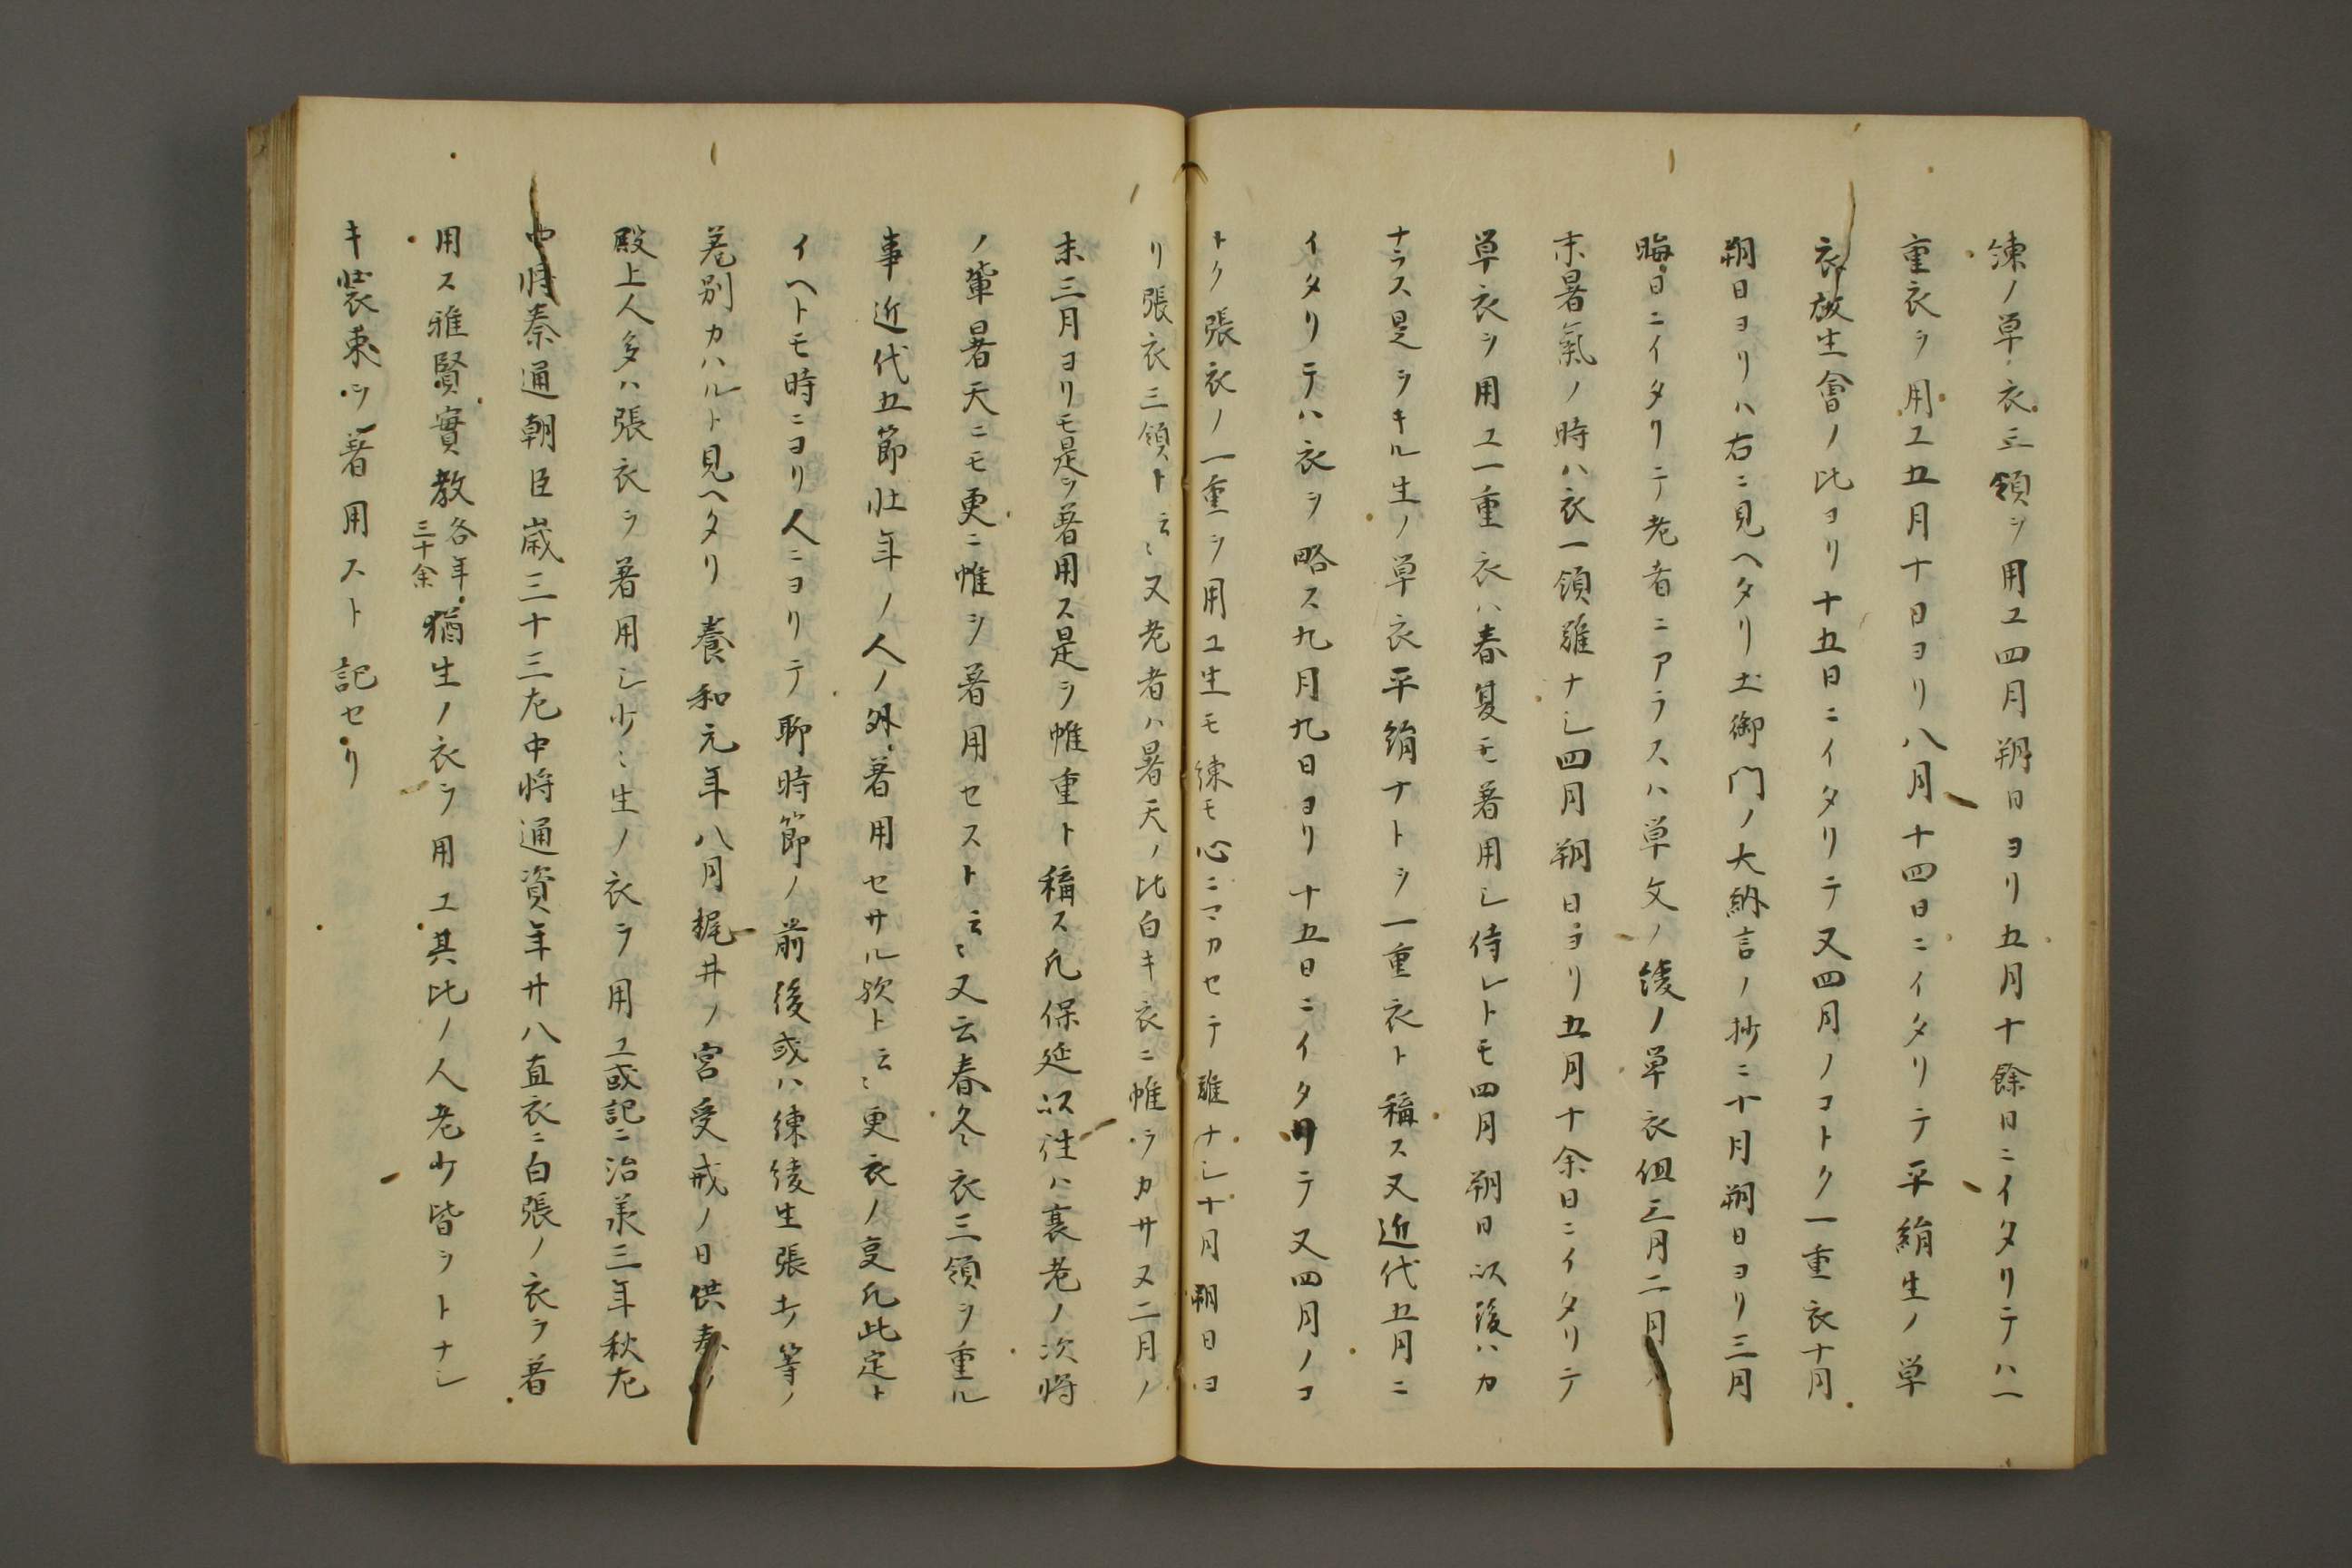 練ノ単衣三領ヲ用ユ四月朔日ヨリ五月十餘日ニイタリテハ一
重衣ヲ用ユ五月十日ヨリ八月十四日ニイタリテ平絹生ノ単
衣放生會ノ比ヨリ十五日ニイタリテ又四月ノコトク一重衣十月
朔日ヨリハ右ニ見ヘタリ土御門ノ大納言ノ抄ニ十月朔日ヨリ三月
晦日ニイタリテ老者ニアラスハ単文ノ綾ノ単衣但三月二月
末暑氣ノ時ハ衣一領難ナシ四月朔日ヨリ五月十余日ニイタリテ
単衣ヲ用ユ一重衣ハ春夏モ著用シ侍レトモ四月朔日以後ハカ
ナラス是ヲキル生ノ単衣平絹ナトヲ一重衣ト稱ス又近代五月ニ
イタリテハ衣ヲ略ス九月九日ヨリ十五日ニイタリテ又四月ノコ
トク張衣ノ一重ヲ用ユ生モ練モ心ニマカセテ難ナシ十月朔日ヨ
リ張衣三領ト云々又老者ハ暑天ノ比白キ衣ニ帷ヲカサヌ二月ノ
末三月ヨリモ是ヲ著用ス是ヲ帷重ト稱ス凡保延以往ハ裏老ノ次将
ノ輩暑天ニモ更ニ帷ヲ著用セスト云々又云春冬衣三領ヲ重ル
事近代五節壯年ノ人ノ外著用セサル歟ト云々更衣ノ夏凡此定ト
イヘトモ時ニヨリ人ニヨリテ聊時節ノ前後或ハ練綾生張等ノ
差別カハルト見ヘタリ養和元年八月梶井ノ宮受戒ノ日供奉ノ
殿上人多ハ張衣ヲ著用シ少々生ノ衣ヲ用ユ或記ニ治承三年秋左
中将泰通朝臣歳三十三左中将通資年廿八直衣ニ白張ノ衣ヲ著
用ス雅賢實教各年三十余猶生ノ衣ヲ用ユ其比ノ人老少皆ヲトナシ
キ装束ヲ著用スト記セリ